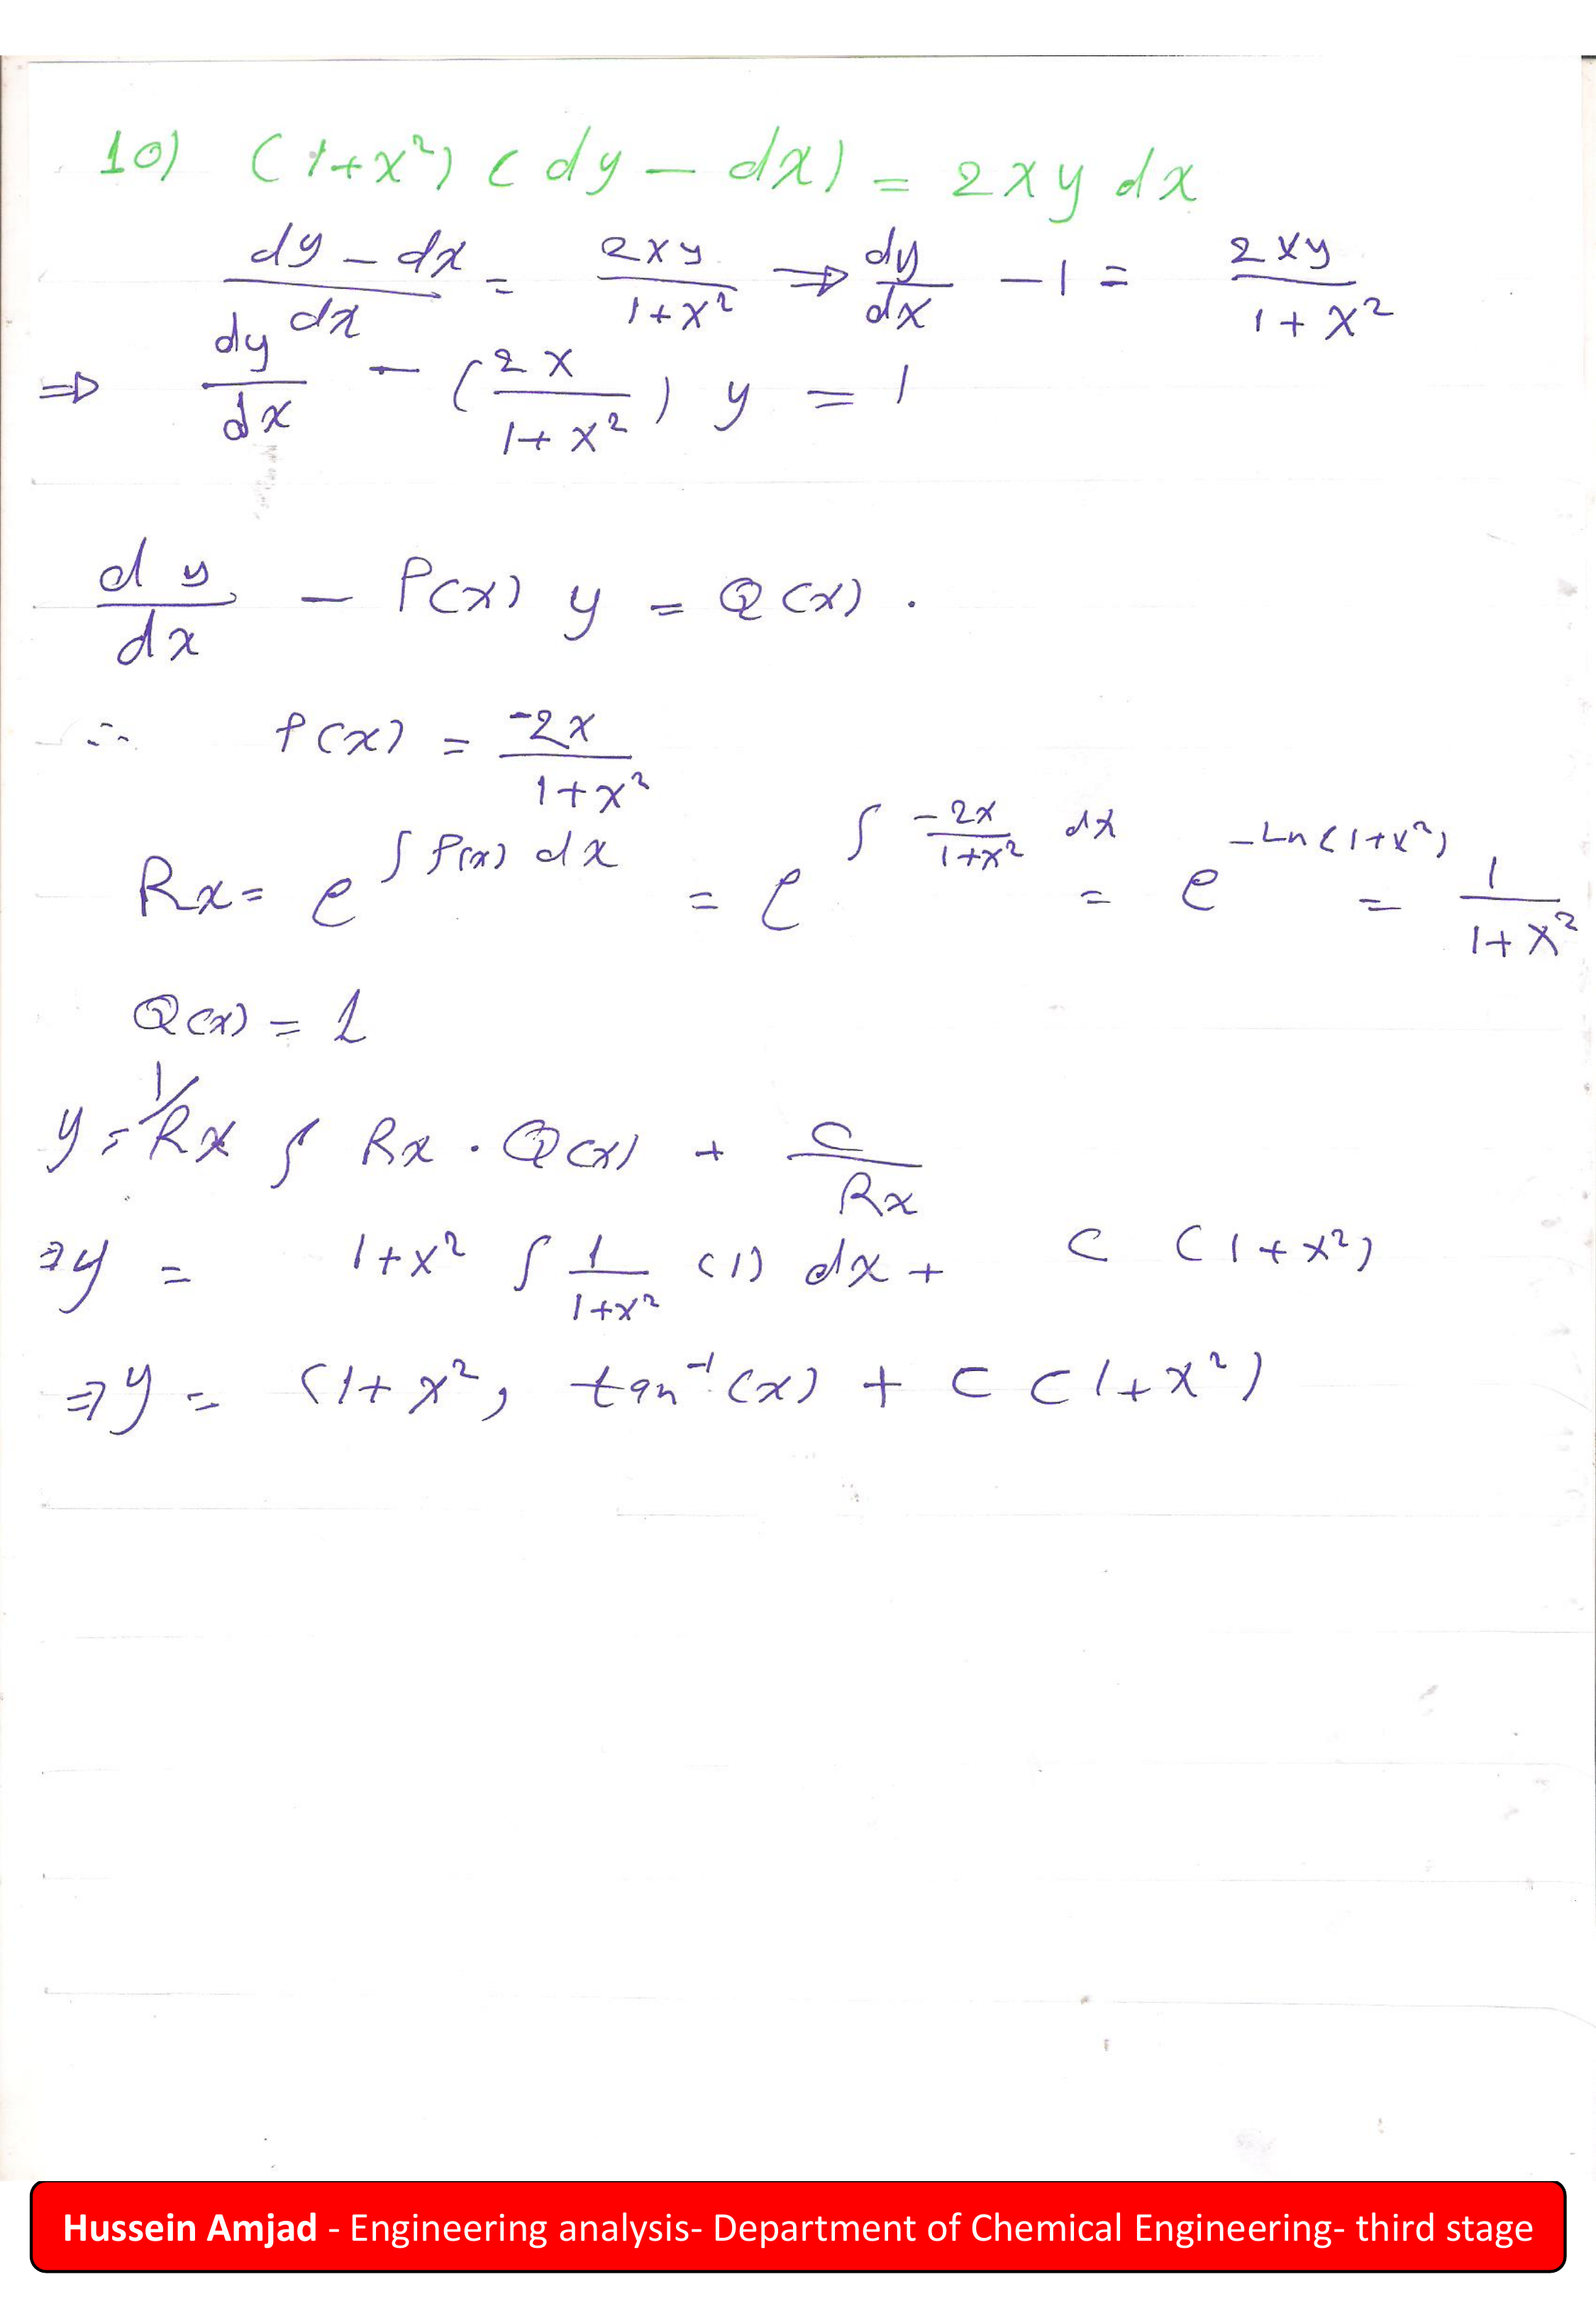 10) (1+x²) (dy - dx) = 2xy dx
(dy - dx)/dx = 2xy/(1+x²) ⇒ dy/dx - 1 = 2xy/(1+x²)
⇒ dy/dx - (2x/(1+x²)) y = 1
dy/dx - P(x) y = Q(x).
∴ P(x) = -2x/(1+x²)
Rx = e^(∫ P(x) dx) = e^(∫ -2x/(1+x²) dx) = e^(-Ln(1+x²)) = 1/(1+x²)
Q(x) = 1
y = 1/Rx ∫ Rx . Q(x) + C/Rx
⇒ y = 1+x² ∫ 1/(1+x²) (1) dx + C (1+x²)
⇒ y = (1+x²) tan⁻¹(x) + C (1+x²)
Hussein Amjad - Engineering analysis- Department of Chemical Engineering- third stage